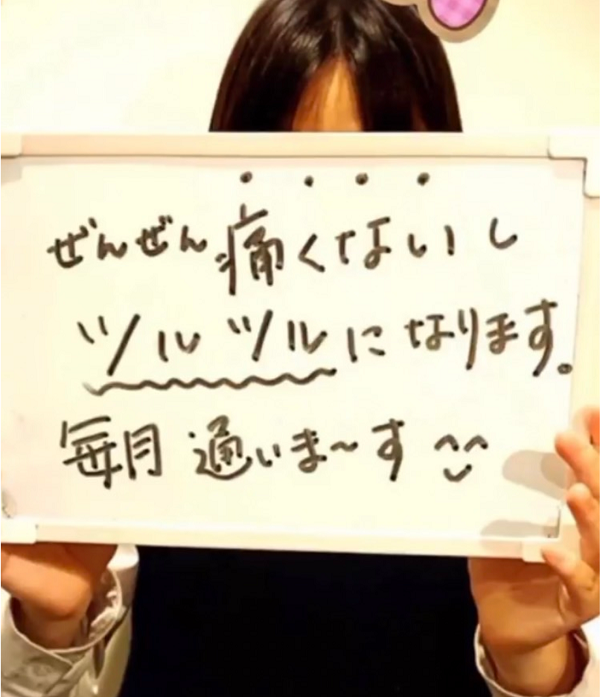 ぜんぜん痛くないし
ツルツルになります。
毎月通いま〜す ^^